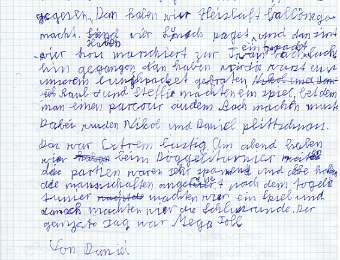 gegeren, Dan haben wir Heisluft ballöne ge-
macht. sind vier Lunch paget und dan sint
wier hou marschiert zur
hin gegangen dan haben
unserem Lunchpacket gebraten
Raul und Steffie machten ein spiel, bei dem
man einen parcour audem Bach machen must
Dabei wurden Nikol und Daniel plittschnass.
Das war Extrem lustig Am abend haben
wier beim Doggelturnier
die partien waren sehr spanend und
die manschaften angefeuert nach dem togel
turnier machten wier ein Spiel und
danach machten wier die Schlussrunde. Der
ganzte Tag war Mega Toll
Von Daniel